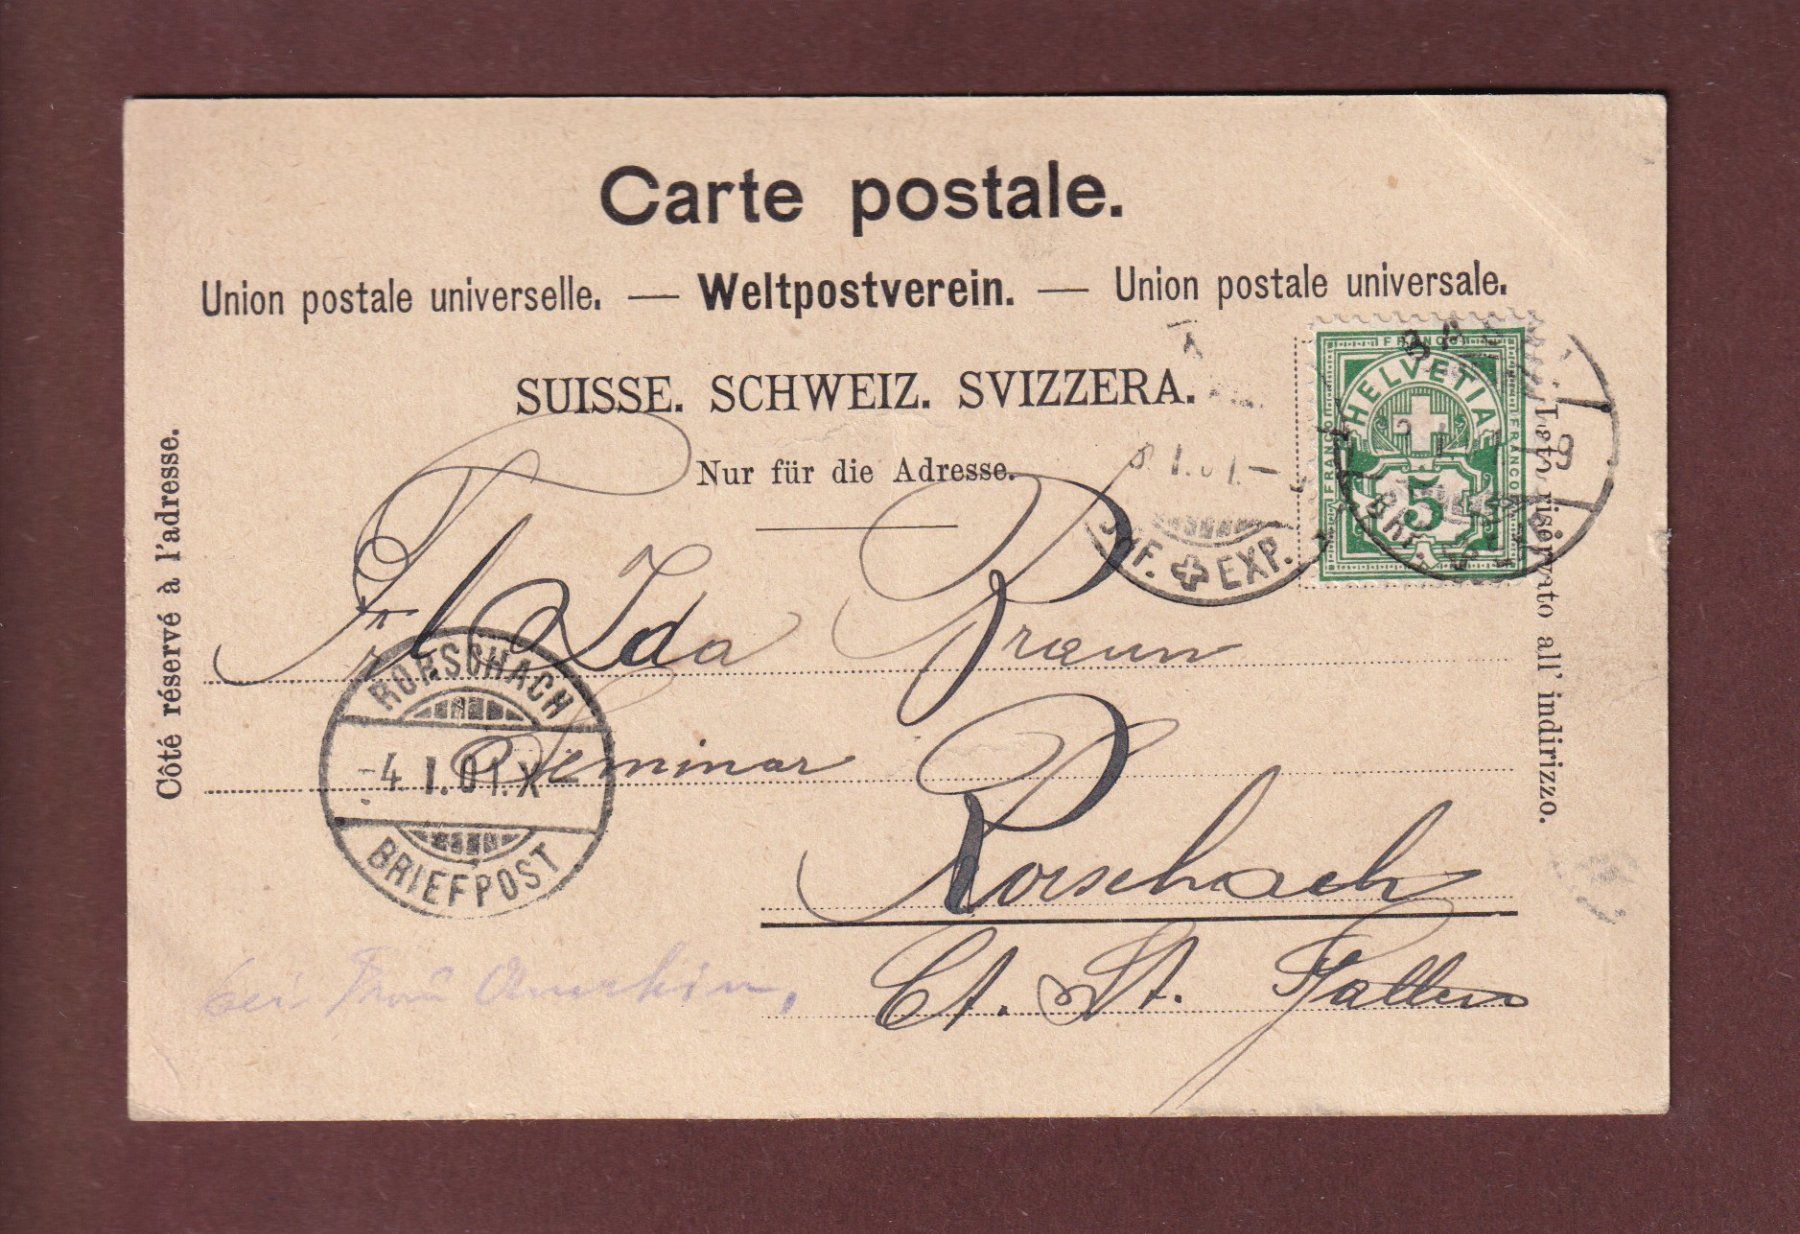 Carte postale.
Union postale universelle. — Weltpostverein. — Union postale universale.
SUISSE. SCHWEIZ. SVIZZERA.
Nur für die Adresse.
Côté réservé à l'adresse.
Lato riservato all' indirizzo.
FRANCO
HELVETIA
FRANCO
FRANCO
5
I.01.–
EXP.
Ida Braun
Seminar
Rorschach
Ct. St. Gallen
RORSCHACH
-4.I.01.X
BRIEFPOST
bei Frau